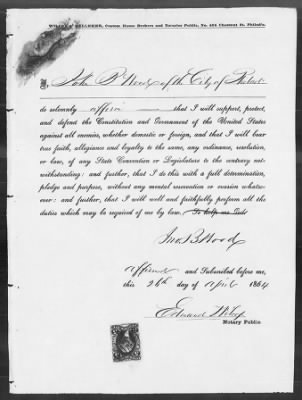 Custom House Brokers and Notaries Public, No. 404 Chestnut St. Philad'a.
I, John B Wood of the City of
do solemnly affirm that I will support, protect,
and defend the Constitution and Government of the United States
against all enemies, whether domestic or foreign, and that I will bear
true faith, allegiance and loyalty to the same, any ordinance, resolution,
or law, of any State Convention or Legislature to the contrary not-
withstanding: and further, that I do this with a full determination,
pledge and purpose, without any mental reservation or evasion whatso-
ever: and further, that I will well and faithfully perform all the
duties which may be required of me by law. So help me God:
Jno. B Wood
Affirmed and Subscribed before me,
this 26th day of April 1864
Notary Public